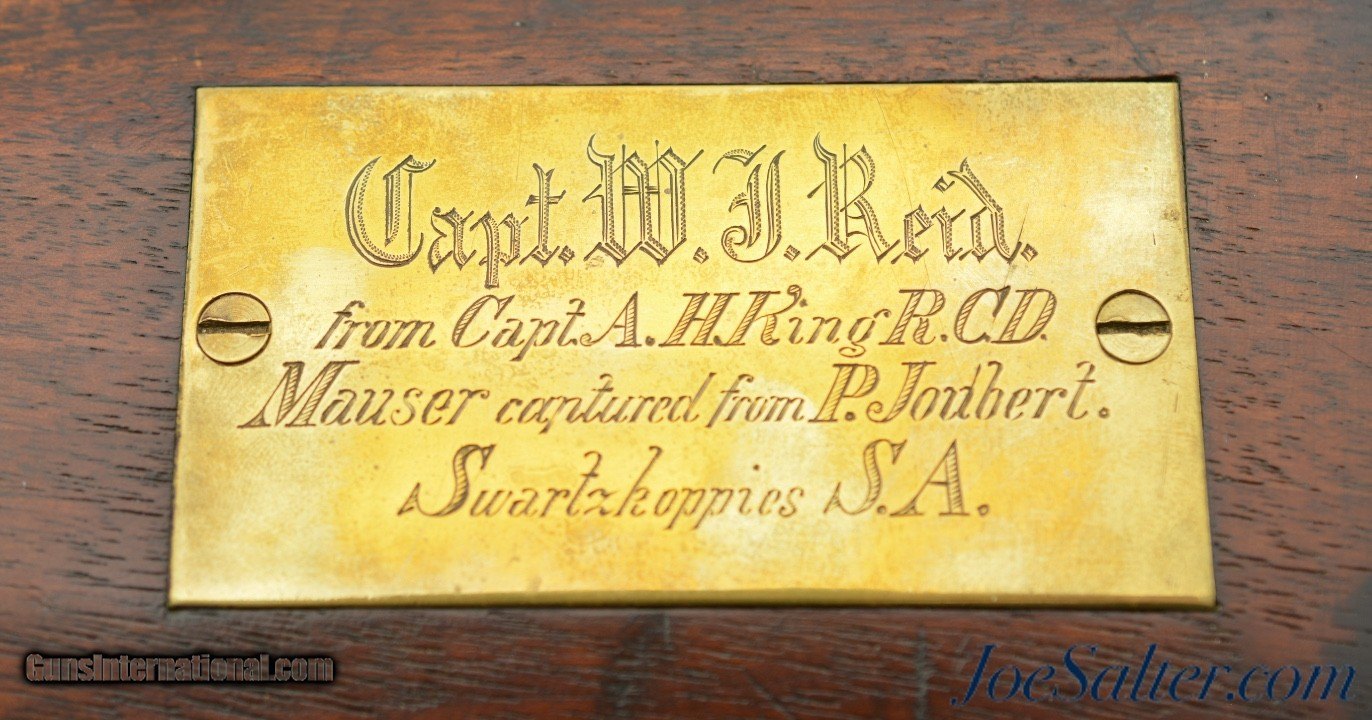 Capt. W. J. Reid.
from Capt. A. H. King R.C.D.
Mauser captured from P. Joubert.
Swartzkoppies S.A.
GunsInternational.com
JoeSalter.com